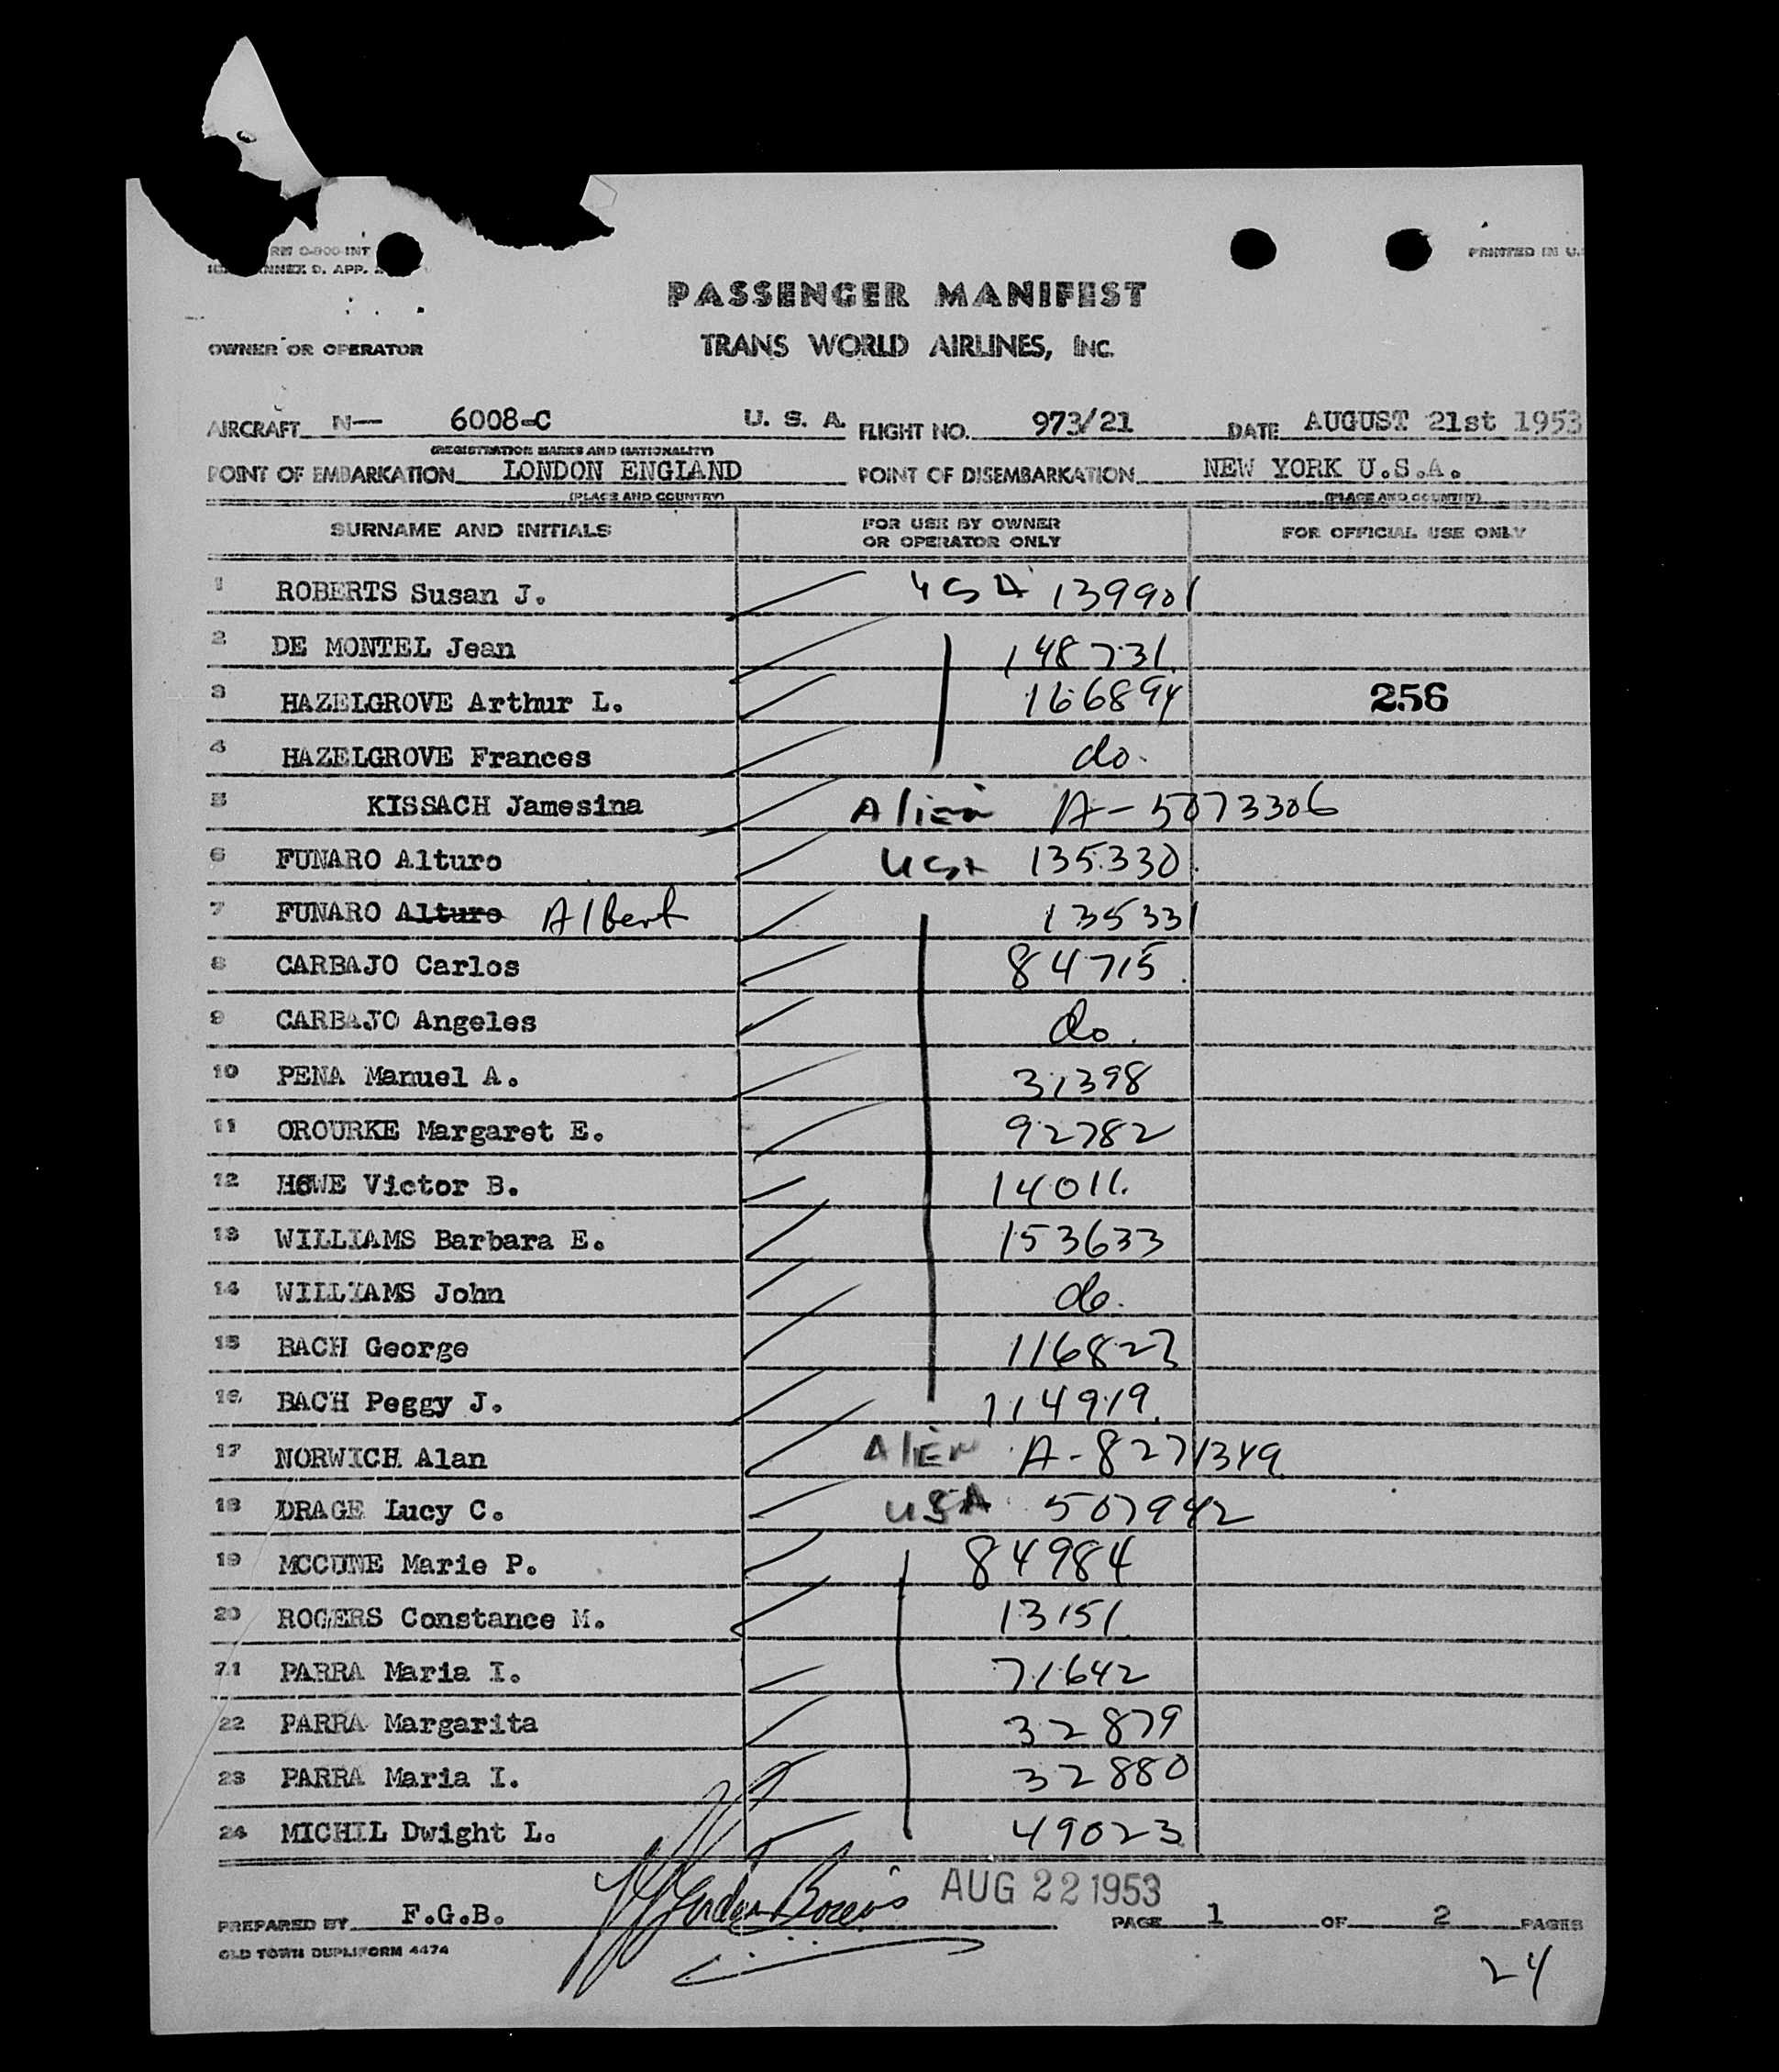 RM 0-800-INT
ANNEX 9. APP.
PRINTED IN U.
PASSENGER MANIFEST
OWNER OR OPERATOR TRANS WORLD AIRLINES, INC.
AIRCRAFT N— 6008-C U. S. A. FLIGHT NO. 973/21 DATE AUGUST 21st 1953
(REGISTRATION MARKS AND NATIONALITY)
POINT OF EMBARKATION LONDON ENGLAND POINT OF DISEMBARKATION NEW YORK U.S.A.
(PLACE AND COUNTRY) (PLACE AND COUNTRY)
SURNAME AND INITIALS FOR USE BY OWNER OR OPERATOR ONLY FOR OFFICIAL USE ONLY
1 ROBERTS Susan J. USA 139901
2 DE MONTEL Jean 148731
3 HAZELGROVE Arthur L. 166894 256
4 HAZELGROVE Frances do.
5 KISSACH Jamesina Alien A-5073306
6 FUNARO Alturo USA 135330
7 FUNARO Alturo Albert 135331
8 CARBAJO Carlos 84715
9 CARBAJO Angeles do.
10 PENA Manuel A. 31398
11 OROURKE Margaret E. 92782
12 HOWE Victor B. 14011
13 WILLIAMS Barbara E. 153633
14 WILLIAMS John do.
15 BACH George 116823
16 BACH Peggy J. 114919
17 NORWICH Alan Alien A-8271349
18 DRAGE Lucy C. USA 507942
19 MCCUNE Marie P. 84984
20 ROGERS Constance M. 13151
21 PARRA Maria I. 71642
22 PARRA Margarita 32879
23 PARRA Maria I. 32880
24 MICHIL Dwight L. 49023
AUG 22 1953
PREPARED BY F.G.B. PAGE 1 OF 2 PAGES
OLD TOWN DUPLIFORM 4474
24